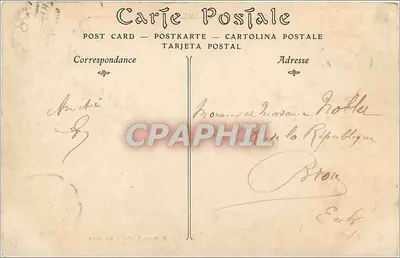 Carte Postale
POST CARD — POSTKARTE — CARTOLINA POSTALE
TARJETA POSTAL
Correspondance
Adresse
Amitiés
Monsieur et Madame
de la République
Brou
CPAPHIL